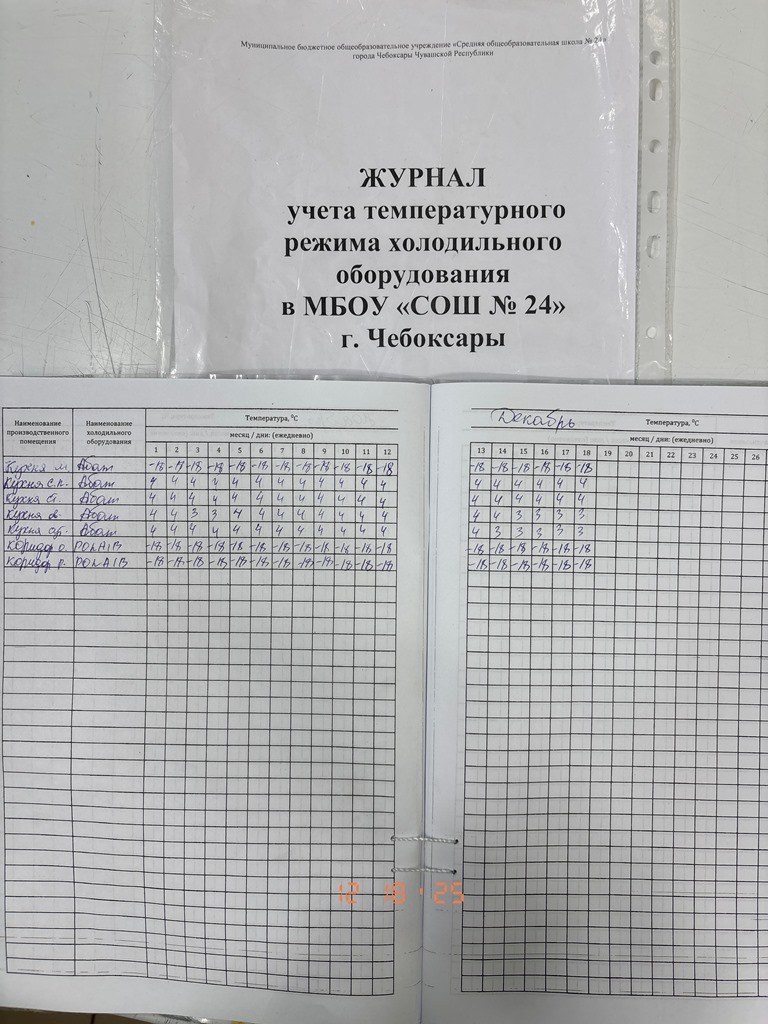 Муниципальное бюджетное общеобразовательное учреждение «Средняя общеобразовательная школа № 24»
города Чебоксары Чувашской Республики
ЖУРНАЛ
учета температурного
режима холодильного
оборудования
в МБОУ «СОШ № 24»
г. Чебоксары
Наименование производственного помещения
Наименование холодильного оборудования
Температура, ⁰С
месяц / дни: (ежедневно)
1 2 3 4 5 6 7 8 9 10 11 12
Кухня м. Абат -18 -18 -18 -18 -18 -18 -18 -18 -18 -18 -18 -18
Кухня с.п. Абат 4 4 4 4 4 4 4 4 4 4 4 4
Кухня ст. Абат 4 4 4 4 4 4 4 4 4 4 4 4
Кухня Абат 4 4 3 3 4 4 4 4 4 4 4 4
Кухня Абат 4 4 4 4 4 4 4 4 4 4 4 4
Коридор о. POLAIR -18 -18 -18 -18 -18 -18 -18 -18 -18 -18 -18 -18
Коридор р. POLAIR -18 -18 -18 -18 -18 -18 -18 -18 -18 -18 -18 -18
Декабрь
Температура, ⁰С
месяц / дни: (ежедневно)
13 14 15 16 17 18 19 20 21 22 23 24 25 26
-18 -18 -18 -18 -18 -18
4 4 4 4 4 4
4 4 4 4 4 4
4 4 3 3 3 3
4 3 3 3 3 3
-18 -18 -18 -18 -18 -18
-18 -18 -18 -18 -18 -18
12 18 '25